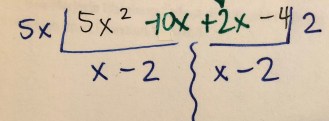 5x 5x² -10x +2x -4 2
x - 2 x - 2